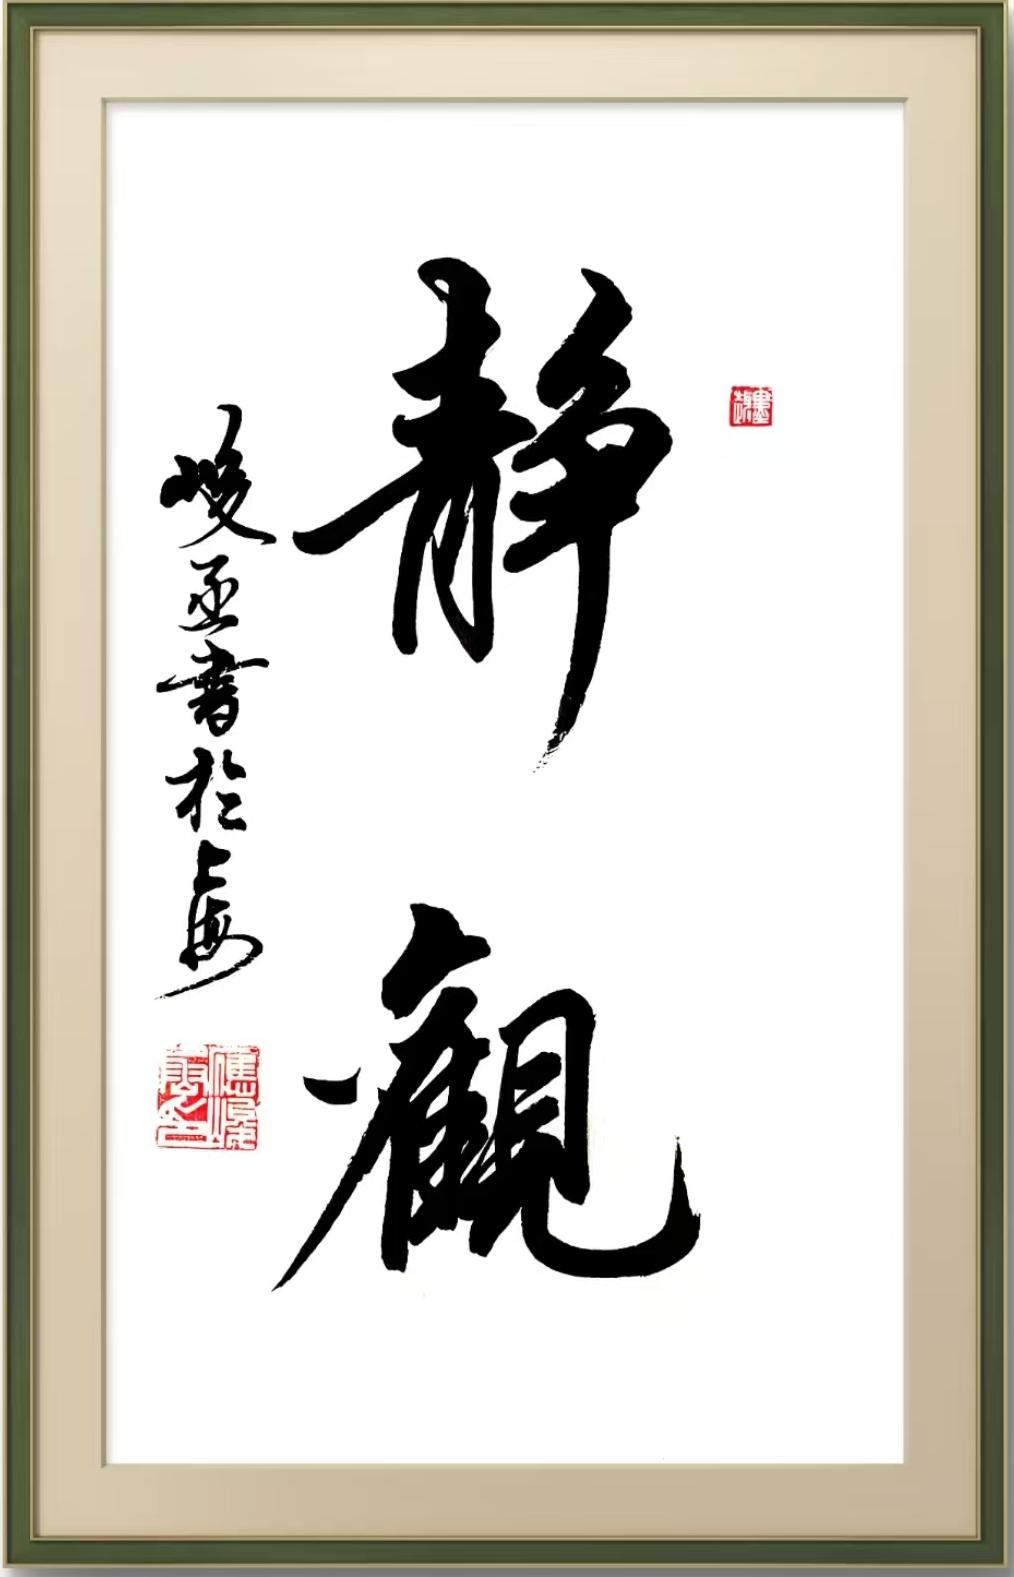 靜觀
峻丞書於上海